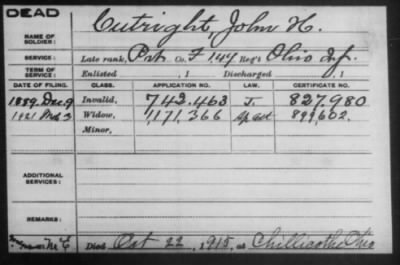 DEAD
Cutright, John H.
NAME OF SOLDIER:
SERVICE: Late rank, Pvt. Co. F 149 Reg't Ohio Inf.
TERM OF SERVICE: Enlisted , 1 Discharged , 1
DATE OF FILING. CLASS. APPLICATION NO. LAW. CERTIFICATE NO.
1889 Dec. 9 Invalid, 742.463 J. 827.980
Widow, 1,171,366 899,602.
Minor,
ADDITIONAL SERVICES:
REMARKS:
Died Oct 22, 1915, at Chillicothe Ohio